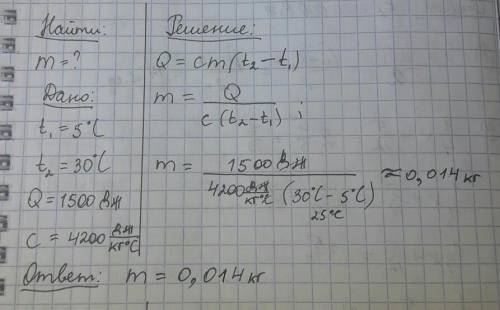 Найти:
m = ?
Дано:
t₁ = 5°C
t₂ = 30°C
Q = 1500 Дж
c = 4200 Дж/кг°C
Решение:
Q = cm(t₂ - t₁)
m = Q / c(t₂ - t₁) ;
m = 1500 Дж / 4200 Дж/кг°C (30°C - 5°C) ≈ 0,014 кг
25°C
Ответ: m = 0,014 кг